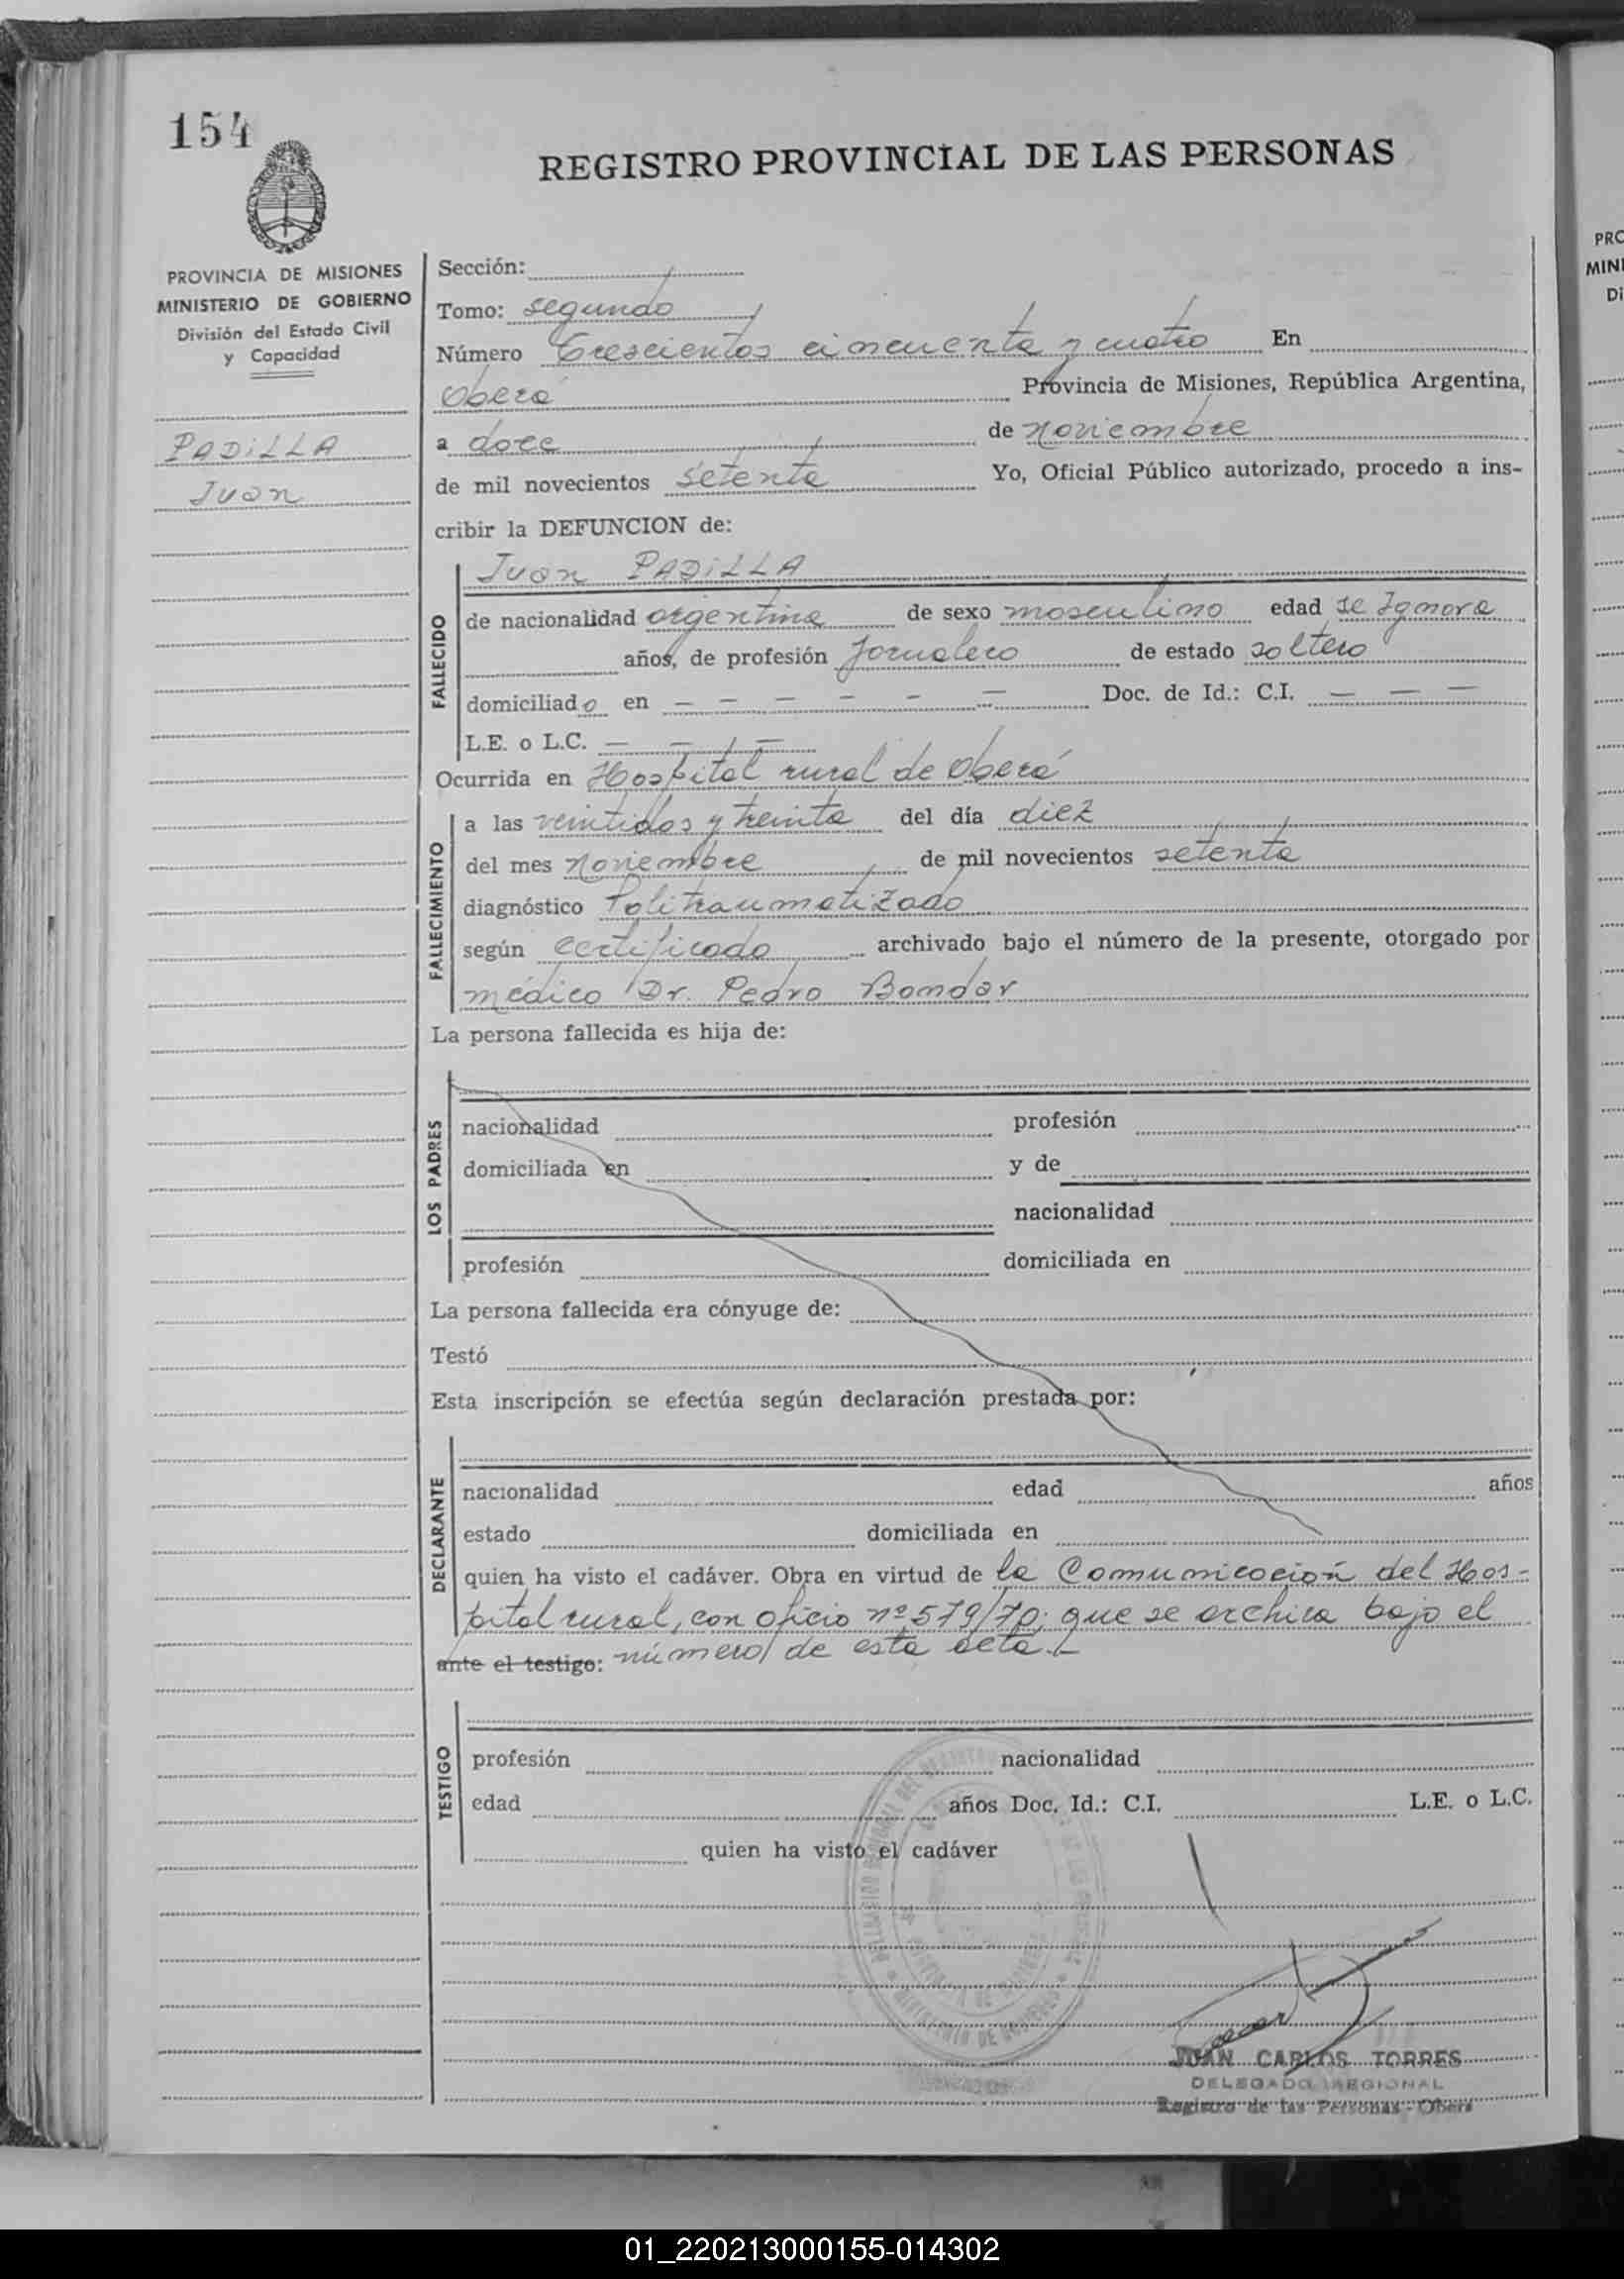 154
REGISTRO PROVINCIAL DE LAS PERSONAS
PROVINCIA DE MISIONES
MINISTERIO DE GOBIERNO
División del Estado Civil
y Capacidad
PADiLLA
Juan
Sección:
Tomo: segundo
Número Trescientos cincuenta y cuatro En
Oberá Provincia de Misiones, República Argentina,
a doce de noviembre
de mil novecientos setenta Yo, Oficial Público autorizado, procedo a ins-
cribir la DEFUNCION de:
Juan PADiLLA
FALLECIDO
de nacionalidad argentina de sexo masculino edad se Ignora
años, de profesión Jornalero de estado soltero
domiciliado en — — — — — — Doc. de Id.: C.I. — — —
L.E. o L.C. — — —
Ocurrida en Hospital rural de Oberá
FALLECIMIENTO
a las veintidos y treinta del día diez
del mes noviembre de mil novecientos setenta
diagnóstico Politraumatizado
según certificado archivado bajo el número de la presente, otorgado por
médico Dr. Pedro Bondar
La persona fallecida es hija de:
LOS PADRES
nacionalidad profesión
domiciliada en y de
nacionalidad
profesión domiciliada en
La persona fallecida era cónyuge de:
Testó
Esta inscripción se efectúa según declaración prestada por:
DECLARANTE
nacionalidad edad años
estado domiciliada en
quien ha visto el cadáver. Obra en virtud de la Comunicación del Hos-
pital rural, con oficio nº 579/70; que se archiva bajo el
ante el testigo: número de esta acta.—
TESTIGO
profesión nacionalidad
edad años Doc. Id.: C.I. L.E. o L.C.
quien ha visto el cadáver
JUAN CARLOS TORRES
DELEGADO REGIONAL
Registro de las Personas - Oberá
PRO
MINI
Di
01_220213000155-014302